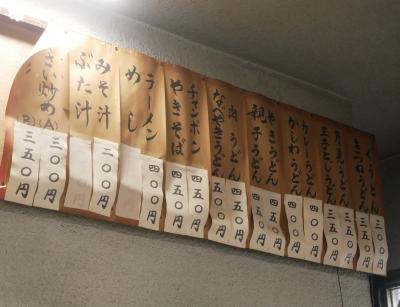 うどん 三〇〇円
きつねうどん 三五〇円
月見うどん 三五〇円
玉子とじうどん 三五〇円
カレーうどん 四〇〇円
かしわうどん 四〇〇円
やきうどん 四五〇円
親子うどん 四五〇円
肉うどん 四五〇円
なべやきうどん 五〇〇円
チャンポン 四五〇円
やきそば 四五〇円
ラーメン 四〇〇円
めし
みそ汁 二〇〇円
ぶた汁
さい炒め (A) 三〇〇円
(B) 三五〇円